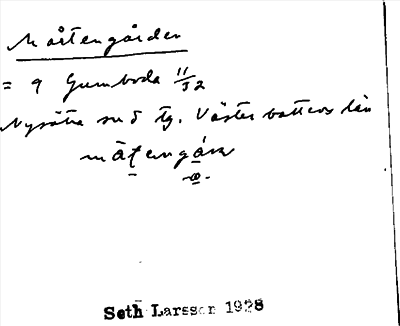 Mårtengården
= 9 Gumboda 11/32
Nysätra sn o tg. Västerbottens län
måtengáṛa
Seth Larsson 1928